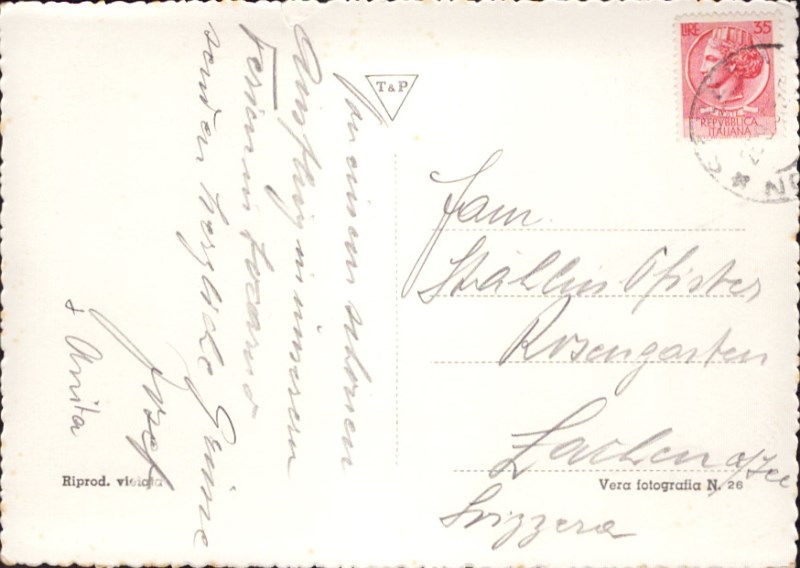 Von einem schönen
Ausflug in unserem
Ferien in Locarno
senden herzliche Grüsse
Josef
& Anita
T&P
LIRE 35
POSTE
REPVBBLICA
ITALIANA
Fam.
Ställin Pfister
Rosengarten
Lachen a/See
Svizzera
Riprod. vietata
Vera fotografia N. 26